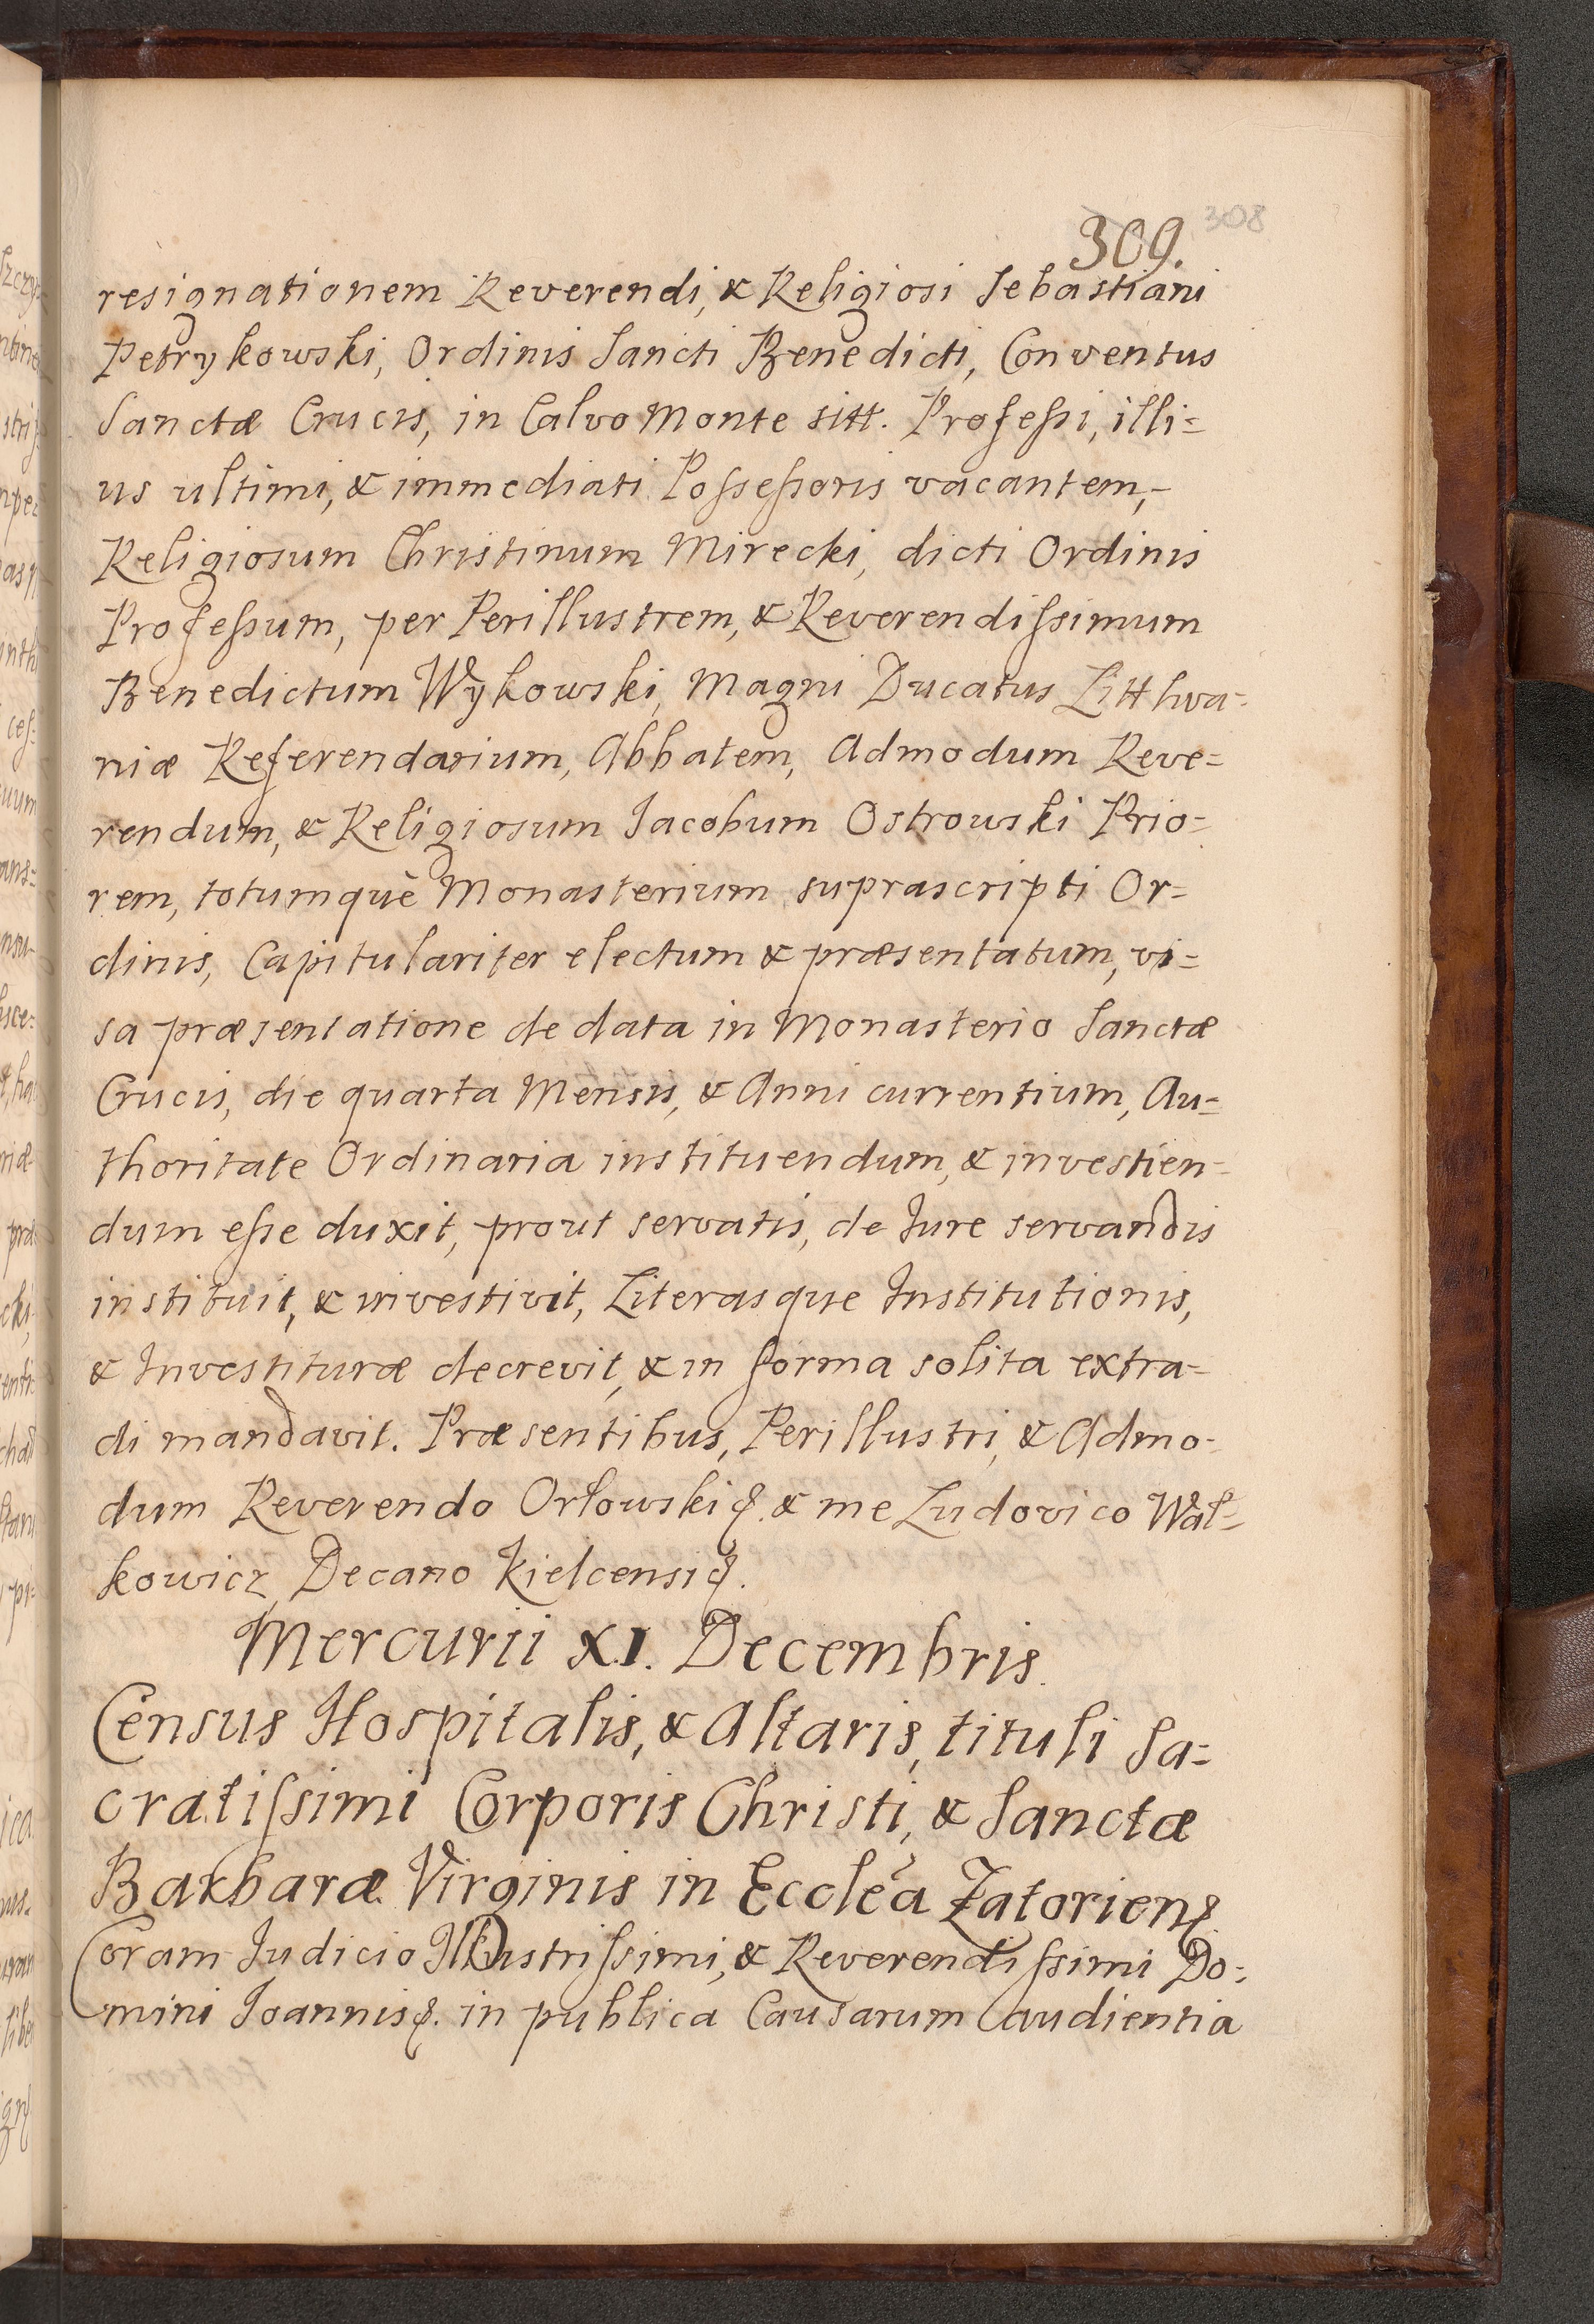 309. 308
resignationem Reverendi, & Religiosi Sebastiani
Petrykowski, Ordinis Sancti Benedicti, Conventus
Sanctæ Crucis, in Calvo Monte sitt. Profeſsi, illi=
us ultimi, & immediati Poſseſsoris vacantem,-
Religiosum Christinum Mirecki, dicti Ordinis
Profeſsum, per Perillustrem, & Reverendiſsimum
Benedictum Wykowski, Magni Ducatus Litthva-
niæ Referendarium, Abbatem, Admodum Reve=
rendum, & Religiosum Jacobum Ostrowski Prio=
rem, totumquè Monasterium suprascripti Or=
dinis, Capitulariter electum & præsentatum, vi=
sa præsentatione de data in Monasterio Sanctæ
Crucis, die quarta Mensis, & Anni currentium, Au=
thoritate Ordinaria instituendum, & investien=
dum eſse duxit, prout servatis, de Jure servandis
instituit, & investivit, Literasque Institutionis,
& Investituræ decrevit, & in forma solita extra=
di mandavit. Præsentibus, Perillustri, & Admo=
dum Reverendo Orłowski &. & me Ludovico Wal=
kowicz, Decano Kielcensi &.
Mercurii XI. Decembris.
Census Hospitalis, & Altaris, tituli Sa=
cratiſsimi Corporis Christi, & Sanctæ
Barbaræ Virginis in Eccleã Zatorien&
Coram Judicio Illustriſsimi, & Reverendiſsimi Do=
mini Joannis &. in publica Causarum audientia